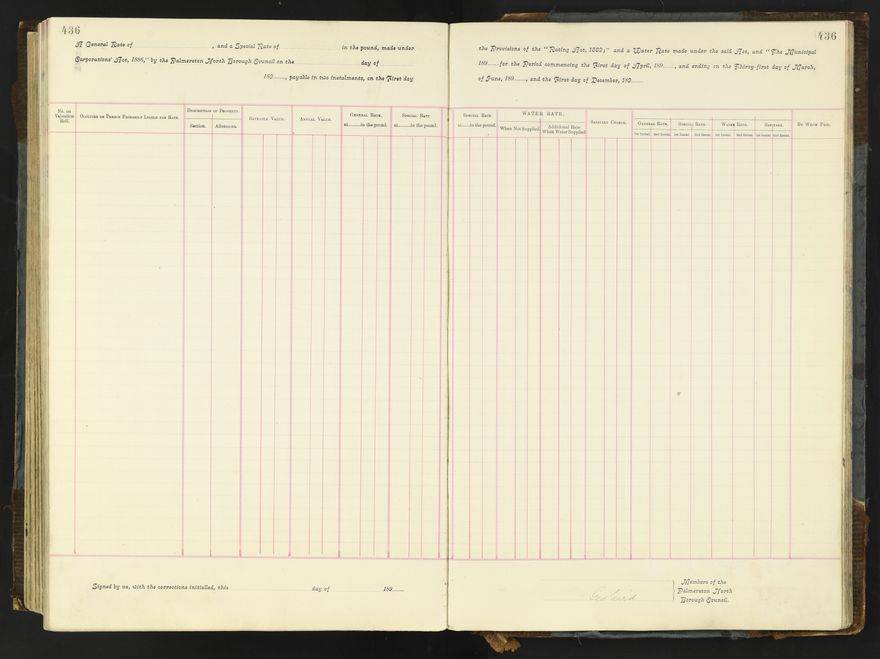 436
A General Rate of , and a Special Rate of in the pound, made under
Corporations' Act, 1886," by the Palmerston North Borough Council on the day of
189 , payable in two instalments, on the First day
No. on Valuation Roll.
Occupier or Person Primarily Liable for Rate.
Description of Property.
Section.
Allotments.
Rateable Value.
Annual Value.
General Rate
at in the pound.
Special Rate
at in the pound.
Signed by us, with the corrections initialled, this day of 189
436
the Provisions of the "Rating Act, 1882;" and a Water Rate made under the said Act, and "The Municipal
189 for the Period commencing the First day of April, 189 , and ending on the Thirty-first day of March,
of June, 189 , and the First day of December, 189
Special Rate
at in the pound.
WATER RATE.
When Not Supplied
Additional Rate
When Water Supplied
Sanitary Charge.
General Rate.
1st Instal. 2nd Instal.
Special Rate.
1st Instal. 2nd Instal.
Water Rate.
1st Instal. 2nd Instal.
Sanitary.
1st Instal. 2nd Instal.
By Whom Paid.
Members of the
Palmerston North
Borough Council.